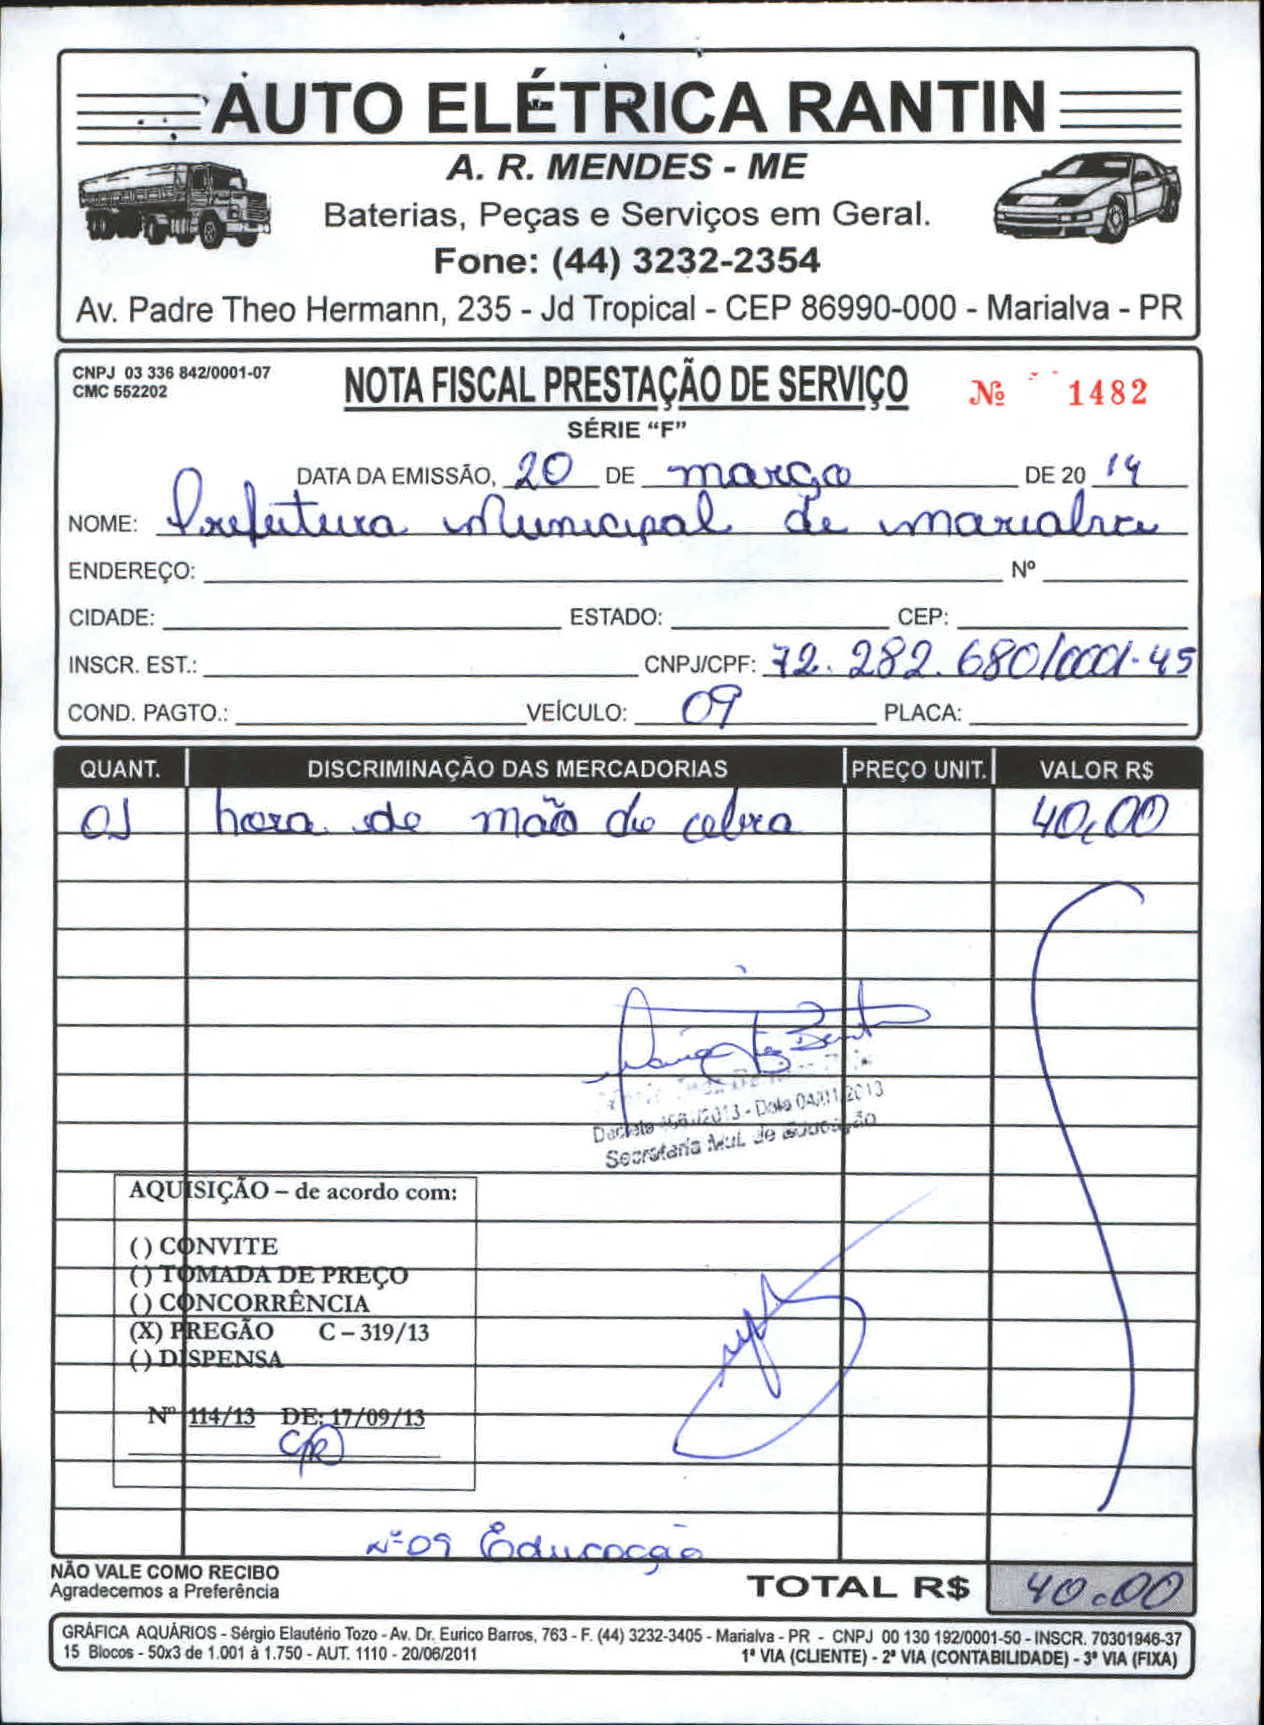 AUTO ELÉTRICA RANTIN
A. R. MENDES - ME
Baterias, Peças e Serviços em Geral.
Fone: (44) 3232-2354
Av. Padre Theo Hermann, 235 - Jd Tropical - CEP 86990-000 - Marialva - PR
CNPJ 03 336 842/0001-07
CMC 552202
NOTA FISCAL PRESTAÇÃO DE SERVIÇO
Nº 1482
SÉRIE “F”
DATA DA EMISSÃO, 20 DE março DE 20 14
NOME: Prefeitura Municipal de Marialva
ENDEREÇO: Nº
CIDADE: ESTADO: CEP:
INSCR. EST.: CNPJ/CPF: 72.282.680/0001-45
COND. PAGTO.: VEÍCULO: 09 PLACA:
QUANT. DISCRIMINAÇÃO DAS MERCADORIAS PREÇO UNIT. VALOR R$
01 hora de mão de obra 40,00
Data 04/01/2013
Secretaria Mul. de Educação
AQUISIÇÃO – de acordo com:
( ) CONVITE
( ) TOMADA DE PREÇO
( ) CONCORRÊNCIA
(X) PREGÃO C – 319/13
( ) DISPENSA
Nº 114/13 DE: 17/09/13
Nº 09 Educação
NÃO VALE COMO RECIBO
Agradecemos a Preferência
TOTAL R$ 40,00
GRÁFICA AQUÁRIOS - Sérgio Elautério Tozo - Av. Dr. Eurico Barros, 763 - F. (44) 3232-3405 - Marialva - PR - CNPJ 00 130 192/0001-50 - INSCR. 70301946-37
15 Blocos - 50x3 de 1.001 à 1.750 - AUT. 1110 - 20/06/2011
1ª VIA (CLIENTE) - 2ª VIA (CONTABILIDADE) - 3ª VIA (FIXA)